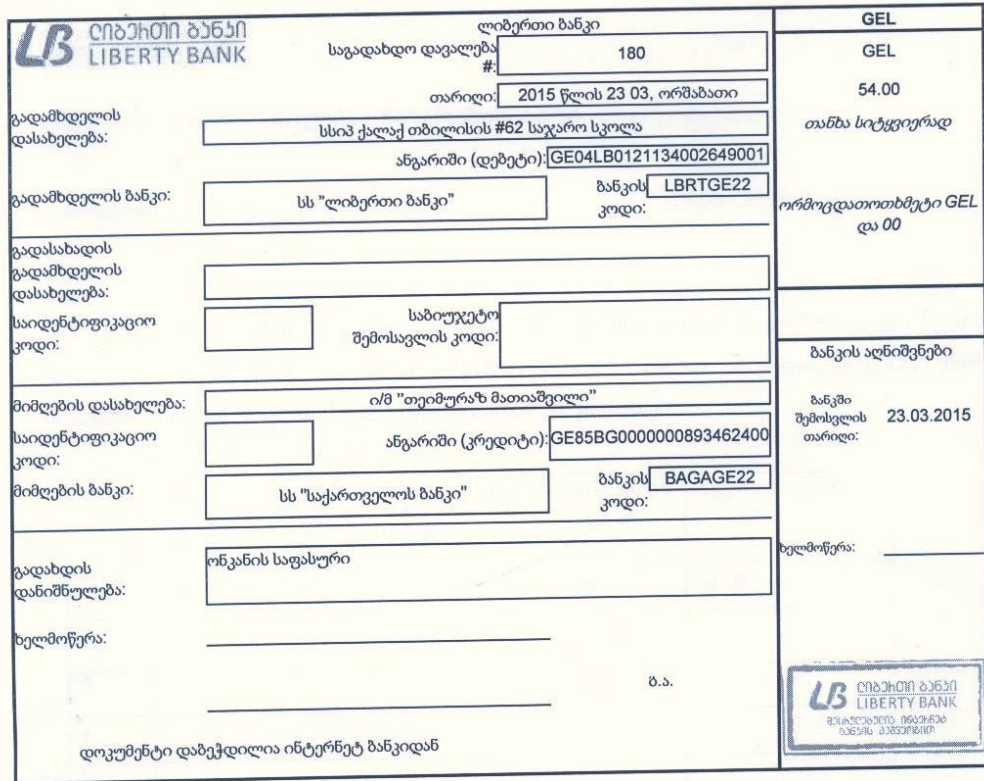 ლიბერთი ბანკი
LIBERTY BANK
ლიბერთი ბანკი
საგადახდო დავალება #: 180
თარიღი: 2015 წლის 23 03, ორშაბათი
გადამხდელის დასახელება: სსიპ ქალაქ თბილისის #62 საჯარო სკოლა
ანგარიში (დებეტი): GE04LB0121134002649001
გადამხდელის ბანკი: სს "ლიბერთი ბანკი"
ბანკის კოდი: LBRTGE22
გადასახადის გადამხდელის დასახელება:
საიდენტიფიკაციო კოდი:
საბიუჯეტო შემოსავლის კოდი:
მიმღების დასახელება: ი/მ "თეიმურაზ მათიაშვილი"
საიდენტიფიკაციო კოდი:
ანგარიში (კრედიტი): GE85BG0000000893462400
მიმღების ბანკი: სს "საქართველოს ბანკი"
ბანკის კოდი: BAGAGE22
გადახდის დანიშნულება: ონკანის საფასური
ხელმოწერა:
ბ.ა.
დოკუმენტი დაბეჭდილია ინტერნეტ ბანკიდან
GEL
GEL
54.00
თანხა სიტყვიერად
ორმოცდათოთხმეტი GEL
და 00
ბანკის აღნიშვნები
ბანკში შემოსვლის თარიღი: 23.03.2015
ხელმოწერა:
ლიბერთი ბანკი
LIBERTY BANK
შესრულებულია ინტერნეტ
ბანკის მეშვეობით